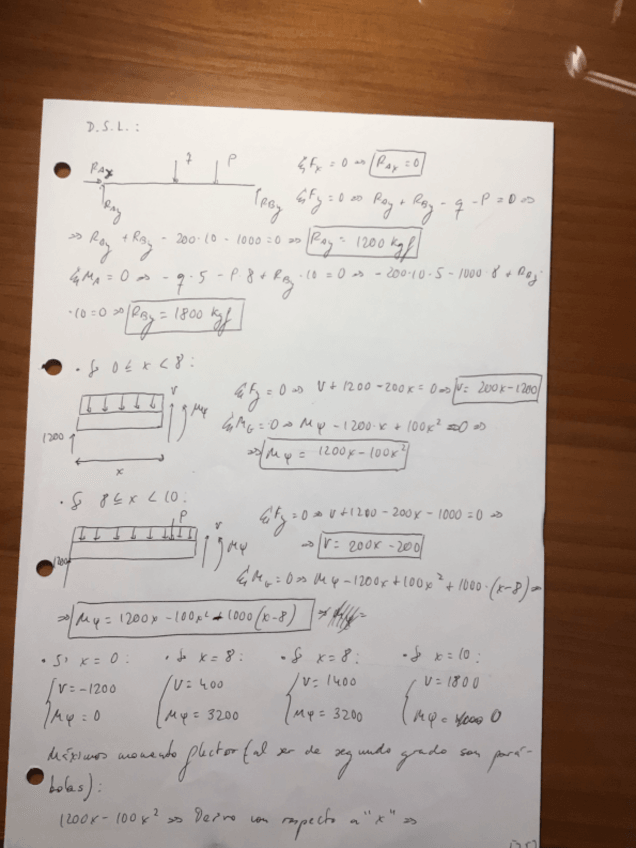 D.S.L.:
R_Ax q P ΣF_x = 0 ⇒ R_Ax = 0
R_Ay R_By ΣF_y = 0 ⇒ R_Ay + R_By - q - P = 0 ⇒
⇒ R_Ay + R_By - 200·10 - 1000 = 0 ⇒ R_Ay = 1200 kgf
ΣM_A = 0 ⇒ - q·5 - P·8 + R_By·10 = 0 ⇒ - 200·10·5 - 1000·8 + R_By·
·10 = 0 ⇒ R_By = 1800 kgf
• Si 0 ≤ x < 8:
V Mφ ΣF_y = 0 ⇒ V + 1200 - 200x = 0 ⇒ V = 200x - 1200
1200 ΣM_G = 0 ⇒ Mφ - 1200·x + 100x² = 0 ⇒
x ⇒ Mφ = 1200x - 100x²
• Si 8 ≤ x < 10:
P V Mφ ΣF_y = 0 ⇒ V + 1200 - 200x - 1000 = 0 ⇒
1200 ⇒ V = 200x - 200
ΣM_G = 0 ⇒ Mφ - 1200x + 100x² + 1000·(x-8) =
⇒ Mφ = 1200x - 100x² + 1000(x-8) ⇒
• Si x = 0: • Si x = 8: • Si x = 8: • Si x = 10:
V = -1200 V = 400 V = 1400 V = 1800
Mφ = 0 Mφ = 3200 Mφ = 3200 Mφ = 0
Máximos momento flector (al ser de segundo grado son pará-
bolas):
1200x - 100x² ⇒ Derivo con respecto a "x" ⇒